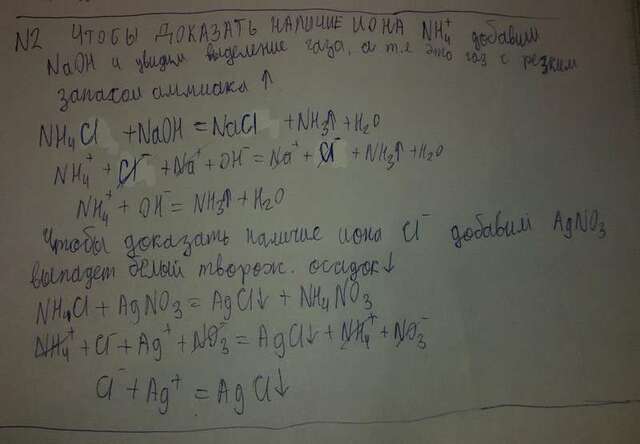 N2 ЧТОБЫ ДОКАЗАТЬ НАЛИЧИЕ ИОНА NH₄⁺ добавим
NaOH и увидим выделение газа, а т.е это газ с резким
запахом аммиака ↑
NH₄Cl + NaOH = NaCl + NH₃↑ + H₂O
NH₄⁺ + Cl⁻ + Na⁺ + OH⁻ = Na⁺ + Cl⁻ + NH₃↑ + H₂O
NH₄⁺ + OH⁻ = NH₃↑ + H₂O
Чтобы доказать наличие иона Cl⁻ добавим AgNO₃
выпадет белый творож. осадок↓
NH₄Cl + AgNO₃ = AgCl↓ + NH₄NO₃
NH₄⁺ + Cl⁻ + Ag⁺ + NO₃⁻ = AgCl↓ + NH₄⁺ + NO₃⁻
Cl⁻ + Ag⁺ = AgCl↓